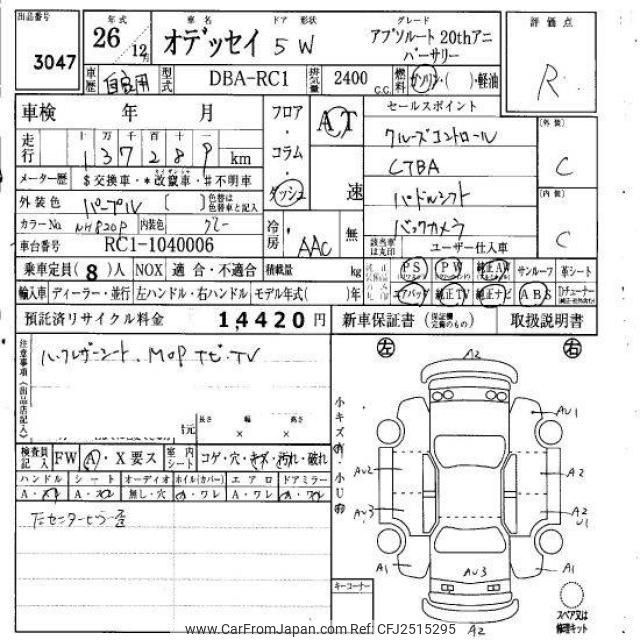 出品番号
3047
年式
26年 12月
車名 ドア 形状
オデッセイ 5W
グレード
アブソルート 20thアニ
バーサリー
評価点
R
車歴 自家用
型式 DBA-RC1
排気量 2400 c.c.
燃料 ガソリン・( )・軽油
車検 年 月
走行 十万千百十一
137289 km
メーター歴 $交換車・*改竄車・#不明車
外装色 パープル [ ] 色替は色替車と記入
カラーNo. NH820P 内装色 グレー
車台番号 RC1-1040006
フロア・コラム・ダッシュ
AT
速
冷房 AAC 無
セールスポイント
クルーズコントロール
CTBA
パドルシフト
バックカメラ
(外装)
C
(内装)
C
該当車は丸印 ユーザー仕入車
乗車定員(8)人 NOX 適合・不適合 積載量 kg
PS PW 純正AW サンルーフ 革シート
輸入車 ディーラー・並行 左ハンドル・右ハンドル モデル年式( )年
エアバッグ 純正TV 純正ナビ ABS Dチューナー
預託済リサイクル料金 14420円 新車保証書 (保証機完備のもの) 取扱説明書
注意事項(出品店記入)
ハーフレザーシート、MOPナビ・TV
長さ 幅 高さ
× ×
検査員記入 FW A・X要ス 室内シート コゲ・穴・キズ・汚れ・破れ
ハンドル シート オーディオ ホイル(カバー) エアロ ドアミラー
A・ス A・ス 無し・穴 A・ワレ A・ワレ A・ワレ
左センターピラー歪
小キズ有・小U有
左 右
A2
AU1
AU2
A2
AU3
A2
U1
A1
AU3
A1
A2
キーコーナー
スペア又は修理キット
www.CarFromJapan.com Ref: CFJ2515295